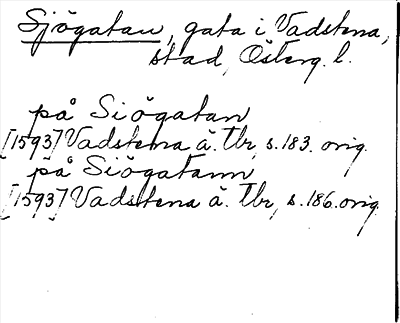 Sjögatan, gata i Vadstena,
stad, Österg. l.
på Siögatan
[1593] Vadstena ä. Tbr, s. 183. orig.
på Siögatann
[1593] Vadstena ä. Tbr, s. 186. orig.